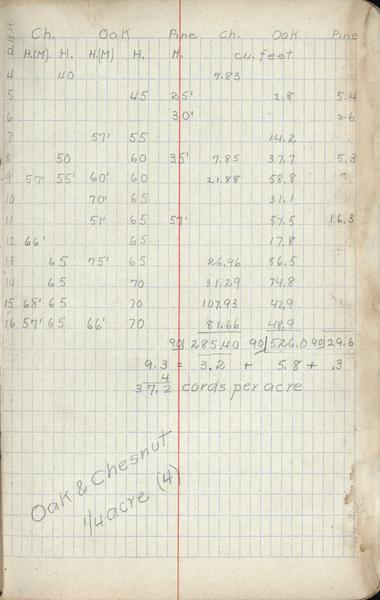 D.B.H. Ch. Oak Pine Ch. Oak Pine
H.(M) H. H.(M) H. H. cu. feet.
4 40 7.83
5 45 25' 2.8 5.4
6 30'
7 57' 55 14.2
8 50 60 35' 7.85 37.7 5.3
9 57' 55' 60' 60 21.88 58.8
10 70' 65 31.1
11 51' 65 57' 57.5 16.3
12 66' 65 17.8
13 65 75' 65 26.96 86.5
14 65 70 31.29 74.8
15 68' 65 70 107.93 42.9
16 57' 65 66' 70 81.66 48.9
90 285.40 90 526.0 90 29.6
9.3 = 3.2 + 5.8 + .3
4
37.2 cords per acre
Oak & Chesnut
1/4 acre (4)